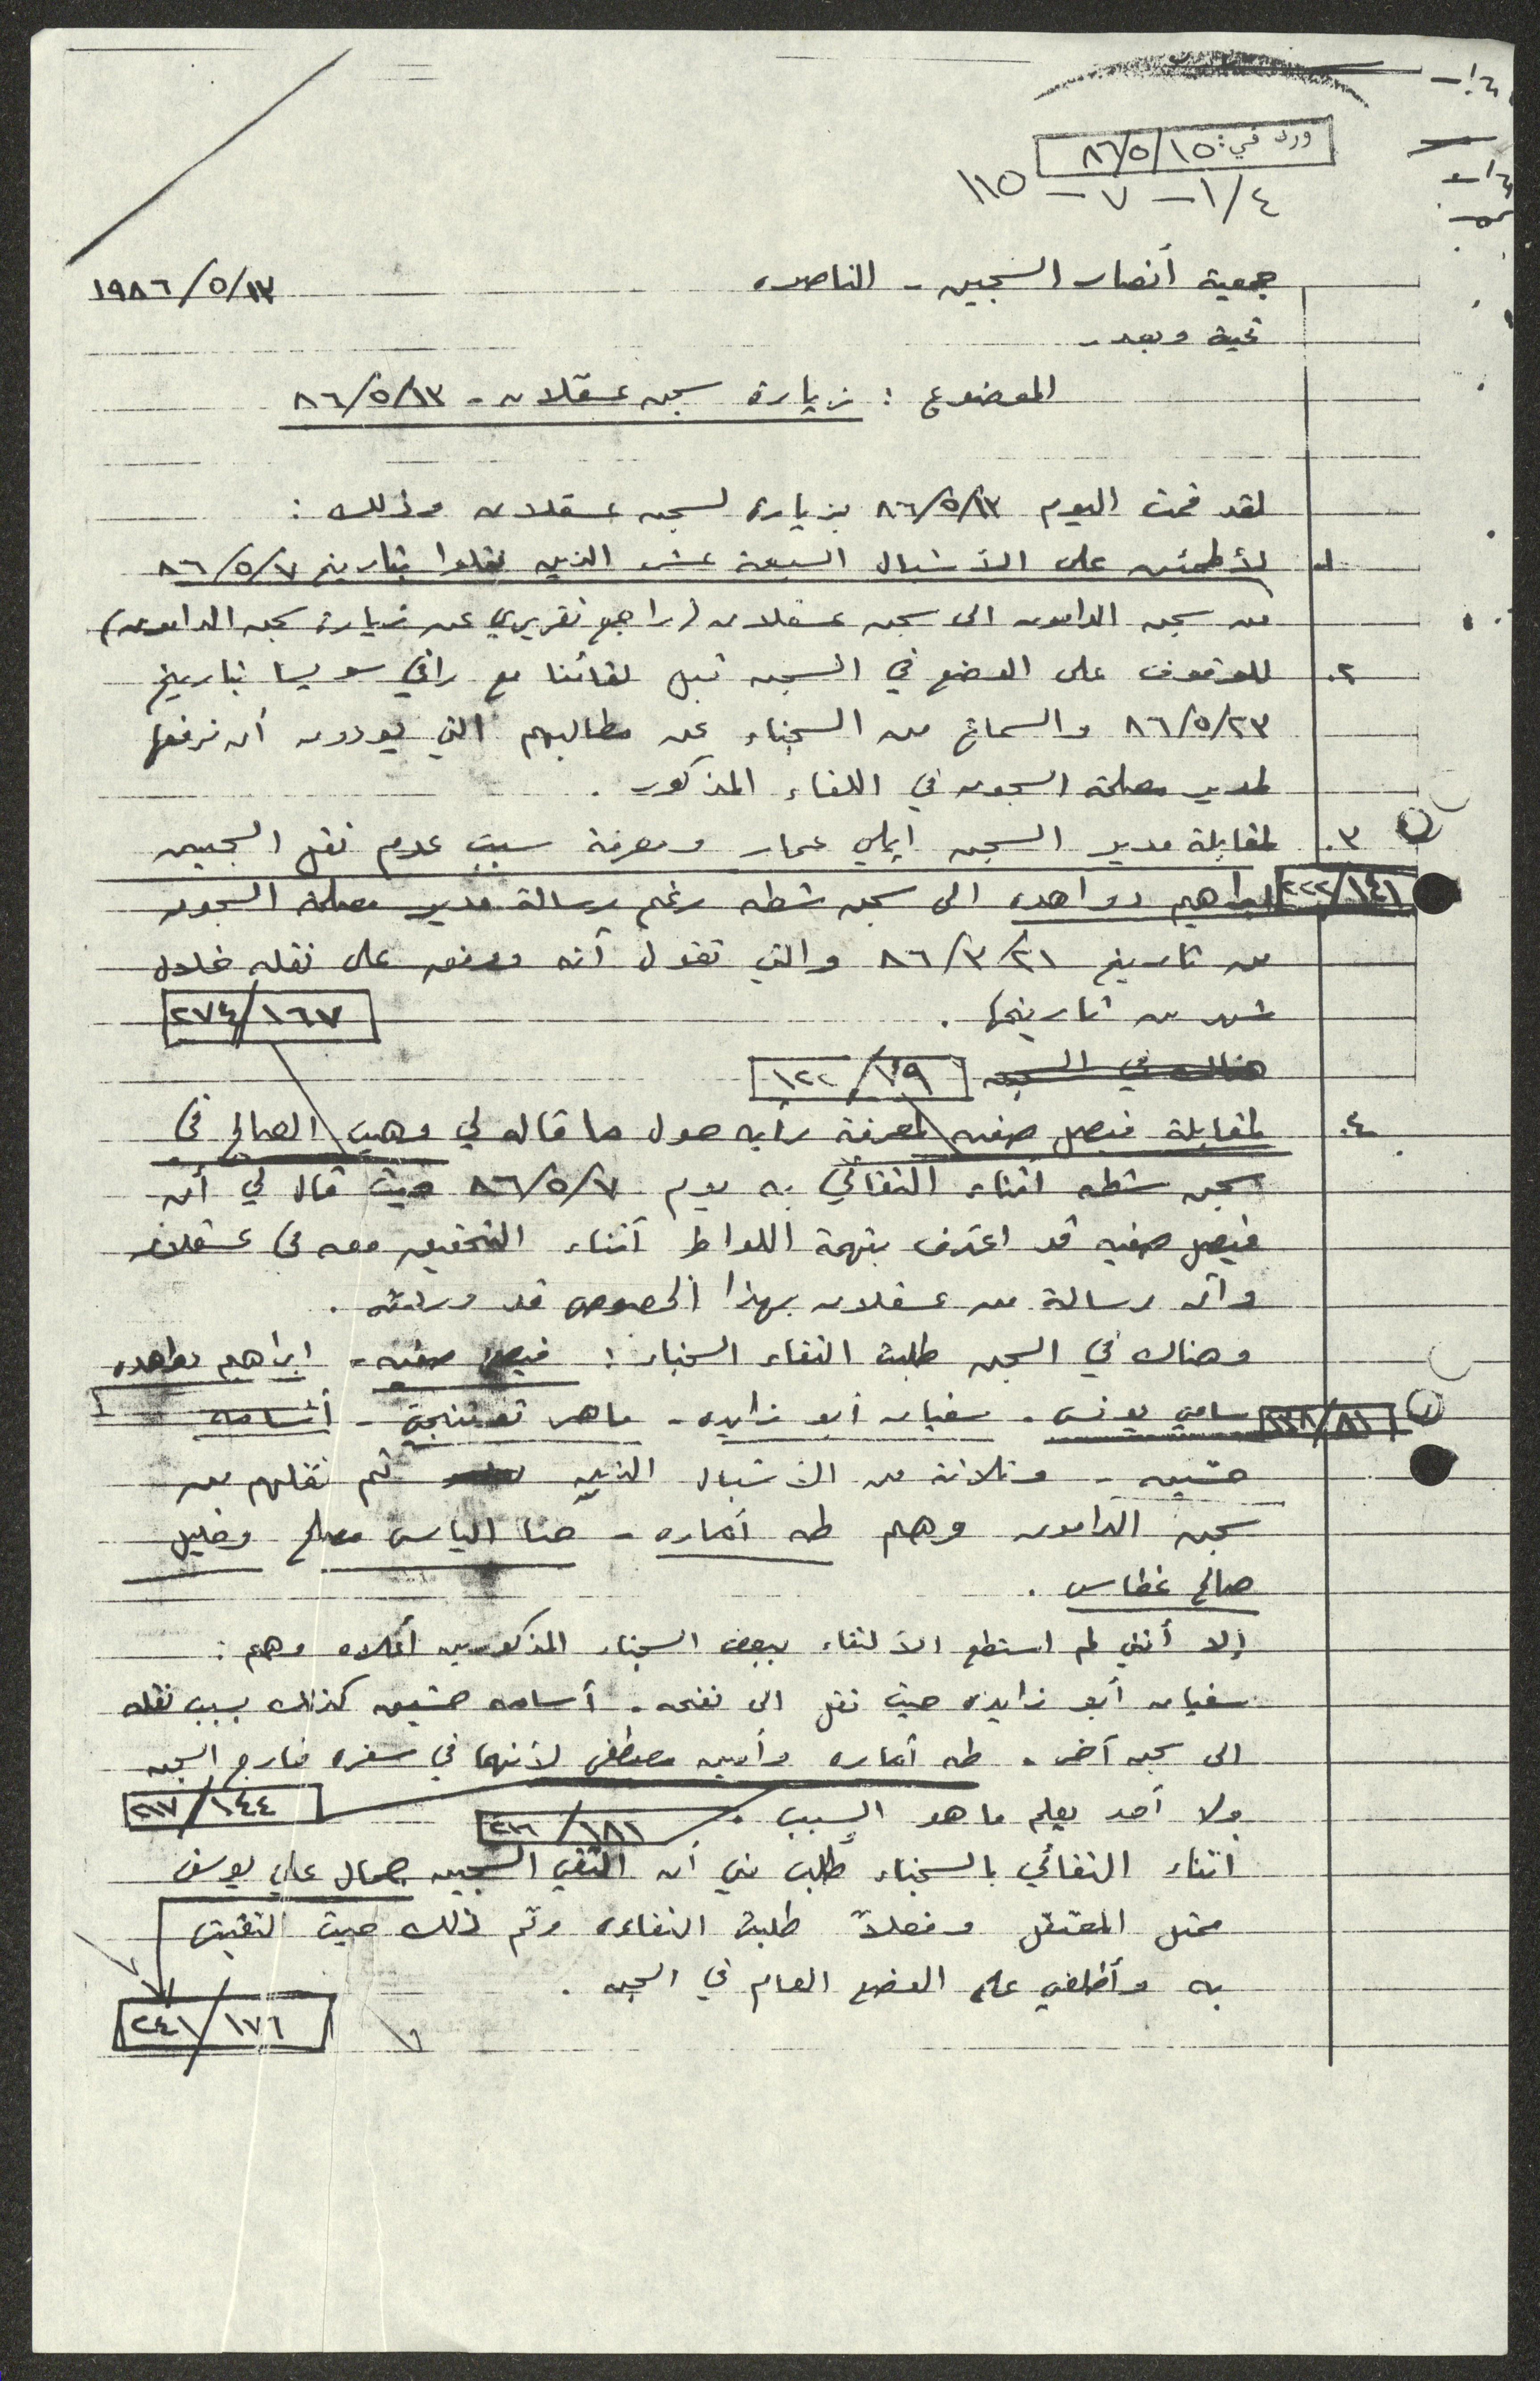 ورد في: ٨٦/٥/١٥
٤/١ - ٧ - ١١٥
جمعية أنصار السجين - الناصره ١٩٨٦/٥/١٣
تحية وبعد -
الموضوع : زيارة سجن عسقلان - ٨٦/٥/١٣
لقد قمت اليوم ٨٦/٥/١٣ بزيارة لسجن عسقلان وذلك :
١. لأطمئن على الأشبال السبعة عشر الذين نقلوا بتاريخ ٨٦/٥/٧
من سجن الدامون الى سجن عسقلان (راجع تقريري عن زيارة سجن الدامون)
٢. للوقوف على الوضع في السجن قبل لقائنا مع رافي سويسا بتاريخ
٨٦/٥/٢٣ والسماع من السجناء عن مطالبهم التي يودون أن نرفعها
لمدير مصلحة السجون في اللقاء المذكور .
٣. لمقابلة مدير السجن ايلي عمار ومعرفة سبب عدم نقل السجين
٢٢٢/١٤١ ابراهيم رواهده الى سجن شطه رغم رسالة مدير مصلحة السجون
من تاريخ ٨٦/٣/٢١ والتي تقول أنه ووفق على نقله خلال
شهر من تاريخها . ٢٧٤/١٦٧
هنالك في السجن ١٢٢/١٩
٤. لمقابلة فيصل صفيه لمعرفة رأيه حول ما قاله لي وهيب الصالح في
سجن شطه اثناء التقائي به يوم ٨٦/٥/٧ حيث قال لي أن
فيصل صفيه قد اعترف بتهمة اللواط أثناء التحقيق معه في عسقلان
وأن رسالة من عسقلان بهذا الخصوص قد وصلته .
وهناك في السجن طلبت التقاء السجناء : فيصل صفيه - ابراهيم رواهده
١٢٨/٨١ سامي يونس - سفيان أبو زايده - ماهر - أسامه
حسين - وثلاثة من الأشبال الذين تم نقلهم من
سجن الدامون وهم طه اعماره - حنا الياس مصلح وخليل
صالح غطاس .
إلا أنني لم استطع الألتقاء ببعض السجناء المذكورين أعلاه وهم :
سفيان أبو زايده حيث نقل الى نفحه . أسامه حسين كذلك بسبب نقله
الى سجن آخر . طه اعماره وأمين مصطفى لأنهما في سفره خارج السجن
ولا أحد يعلم ما هو السبب . ٢١٧/١٤٤
٢٣٦/١٨١
اثناء التقائي بالسجناء طُلب مني أن التقي السجين جمال علي يوسف
ممثل المعتقل وفعلاً طلبت التقاءه وتم ذلك حيث التقيت
به وأطلعني على الوضع العام في السجن .
٢٤١/١٧٦